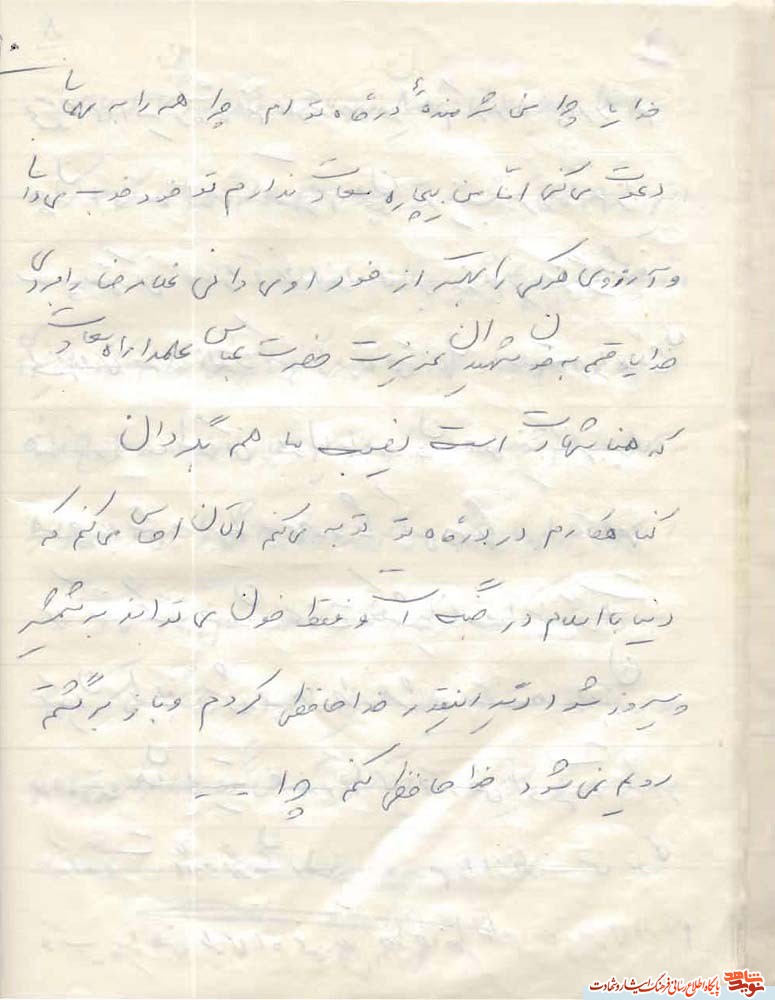 خدایا چرا من شرمندهٔ درگاه تو ام چرا همه را به مهمانی
دعوت می‌کنی اما من بیچاره سعادت ندارم تو خود خوب می‌دانی
و آرزوی هرکس را بهتر از خود او می دانی غلامرضا را بردی
خدایا قسم به خون شهیدان عزیزت حضرت عباس علمدار راه سعادت
که همان شهادت است نصیب ما هم بگردان
گناهکارم در درگاه تو توبه می‌کنم الان احساس می‌کنم که
دنیا با اسلام در جنگ است و فقط خون می تواند بر شمشیر
پیروز شود اینقدر خداحافظی کردم و باز برگشتم
رویم نمی‌شود خداحافظی کنم چرا
نوید شاهد
پایگاه اطلاع رسانی فرهنگ ایثار و شهادت